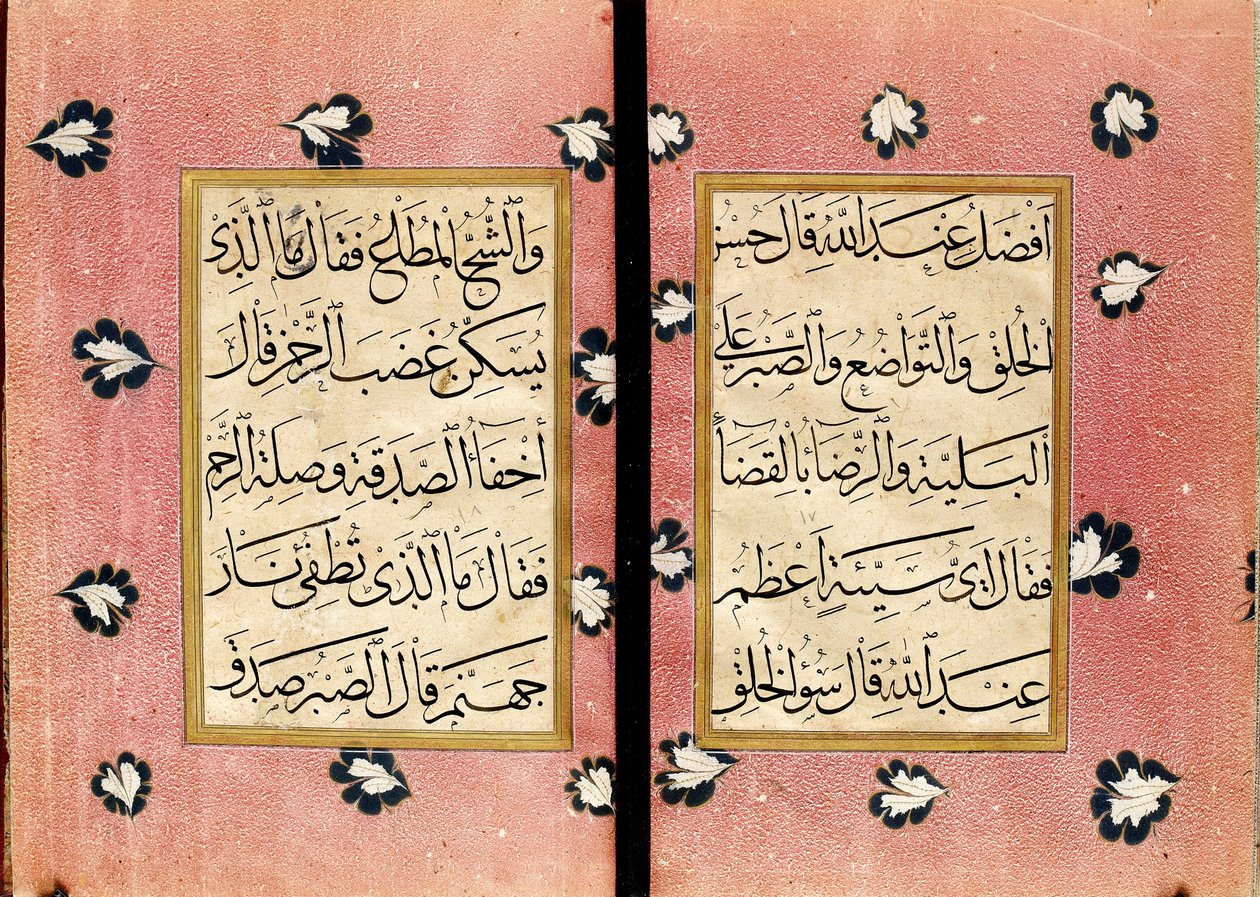 اَفْضَلُ عِنْدَ اللّٰهِ قَالَ حُسْنُ
الْخُلِقْ وَالتَّوَاضُعُ وَالصَّبْرُ عَلَى
الْبَلِيَّةِ وَالرِّضَاءُ بِالْقَضَاءِ
فَقَالَ اَىُّ سَيِّئَةٍ اَعْظَمُ
عِنْدَ اللّٰهِ قَالَ سُوءُ الْخُلِقْ
وَالشُّحُّ الْمُطَلِعُ فَقَالَ مَا الَّذِى
يُسَكِّنُ غَضَبَ الرَّحْمٰنِ قَالَ
اَخِفَاءُ الصَّدَقَةِ وَصِلَةُ الرَّحِمِ
فَقَالَ مَا الَّذِى تُطْفِئُ نَارَ
جَهَنَّمَ قَالَ الصَّبْرُ صَدَقَ
١٧
١٨